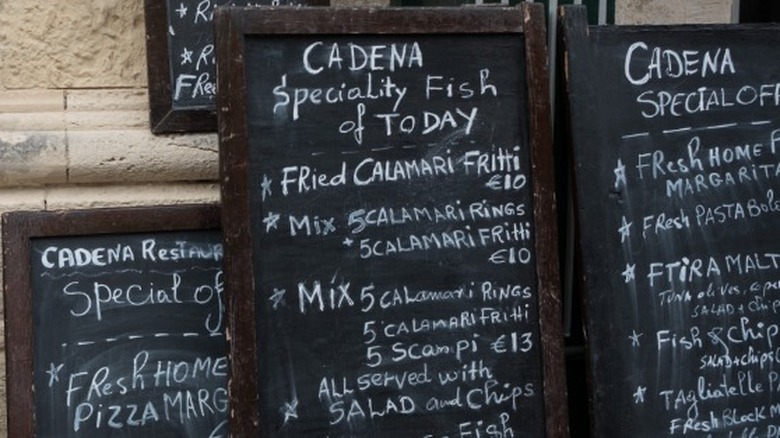 CADENA
Speciality Fish
of TODAY
FRied CALAMARI FRitti
€10
Mix 5CALAMARI RiNGS
5CALAMARI FRitti
€10
MiX 5 CALAMARI RiNGS
5 CALAMARI FRitti
5 SCAMPi €13
ALL SeRved with
SALAD and Chips
Fish
CADENA RestAUR
Special of
FResh HOME
PiZZA MARG
CADENA
SPeCiAL OFF
FResh HOME
MARGARITA
FResh PASTA BoLo
FTiRA MALT
TUNA olives, cape
SALAD + Chips
Fish & Chip
SALAD + Chips
TAgLiAteLLe
FResh BLACK